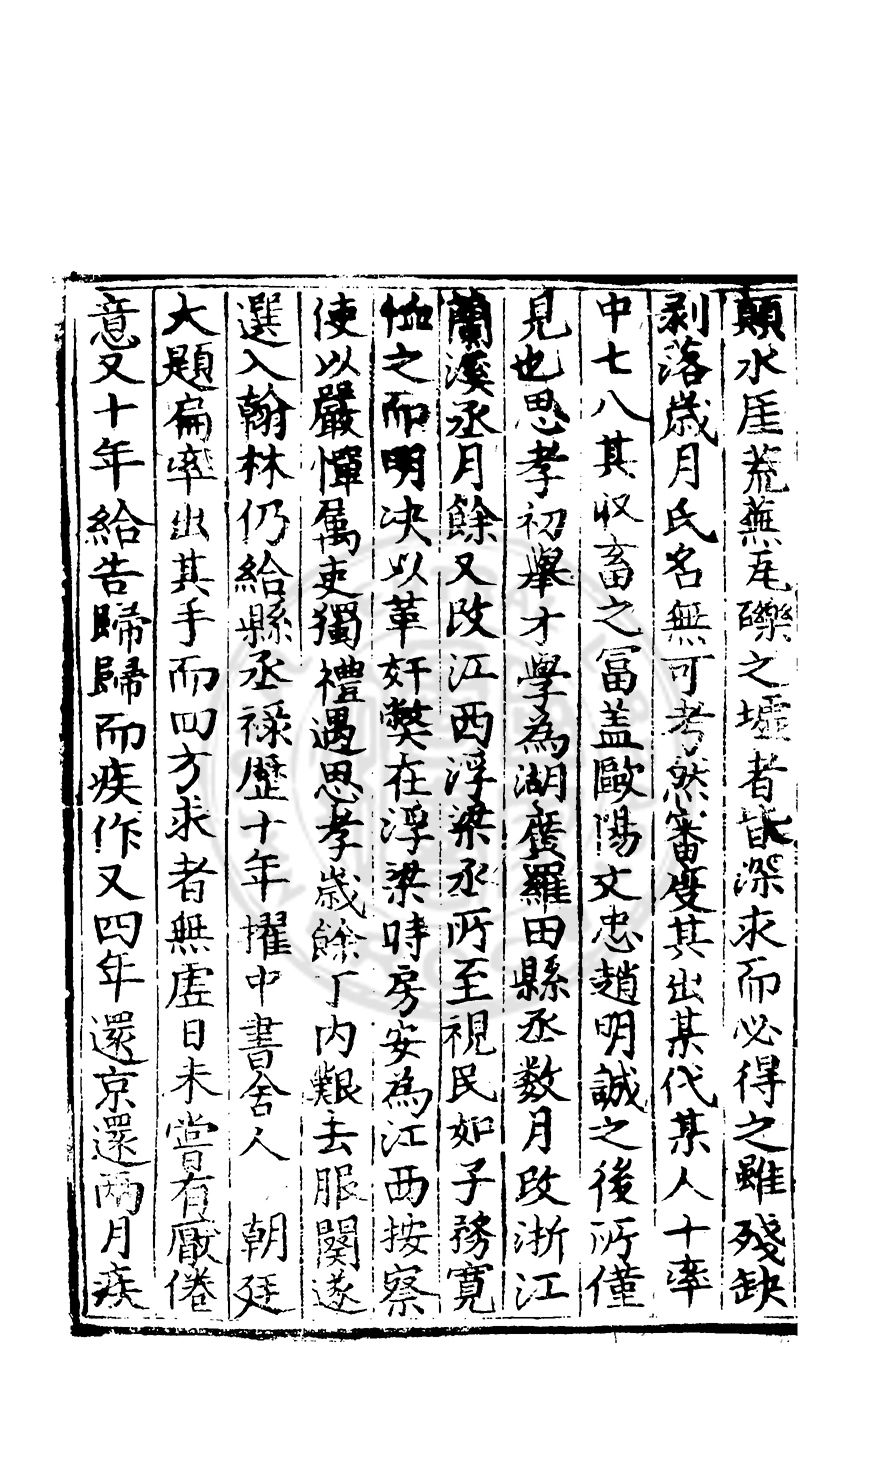 顛水厓荒蕪瓦礫之墟者皆深求而必得之雖殘缺
剥落歲月氏名無可考然審度其出某代某人十率
中七八其収畜之冨盖歐陽文忠趙明誠之後所僅
見也思孝初舉才學為湖廣羅田縣丞数月改浙江
蘭溪丞月餘又改江西浮梁丞所至視民如子務寛
恤之而明决以革奸獘在浮梁時房安為江西按察
使以嚴憚属吏獨禮遇思孝歲餘丁内艱去服闋遂
選入翰林仍給縣丞禄歷十年擢中書舍人　朝廷
大題扁率出其手而四方求者無虚日未嘗有厭倦
意又十年給告歸歸而疾作又四年還京還兩月疾